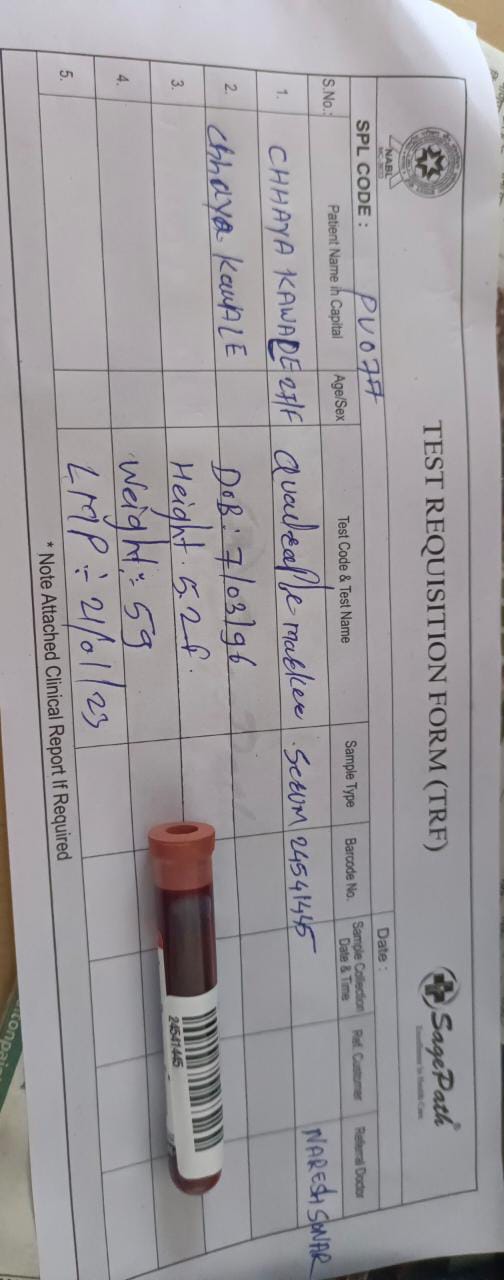 TEST REQUISITION FORM (TRF)
SagePath
NABL
SPL CODE : PV077
Date :
S.No.: Patient Name in Capital Age/Sex Test Code & Test Name Sample Type Barcode No. Sample Collection Date & Time Ref. Customer Referral Doctor
1. CHHAYA KAWADE 27/F Quadraple marker Serum 24541445 NARESH SONAR
2. Chhaya KawALE DOB: 7/03/96
3. Height. 5.2 f.
4. Weight:- 59
5. LMP:- 21/01/23
* Note Attached Clinical Report If Required
24541445